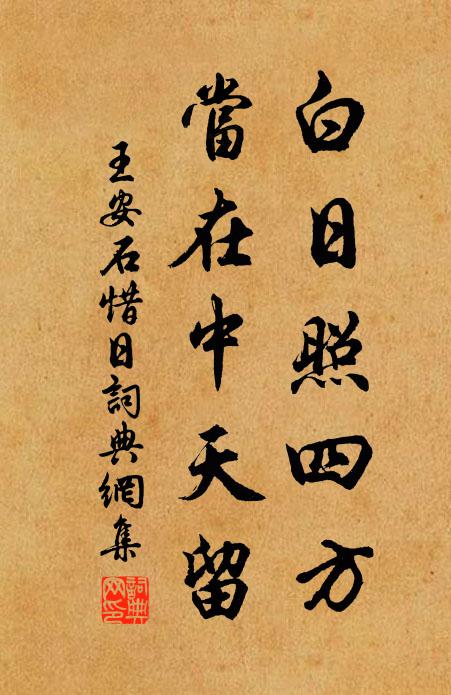 白日照四方
當在中天留
王安石惜日詞典網集
詞典
网印